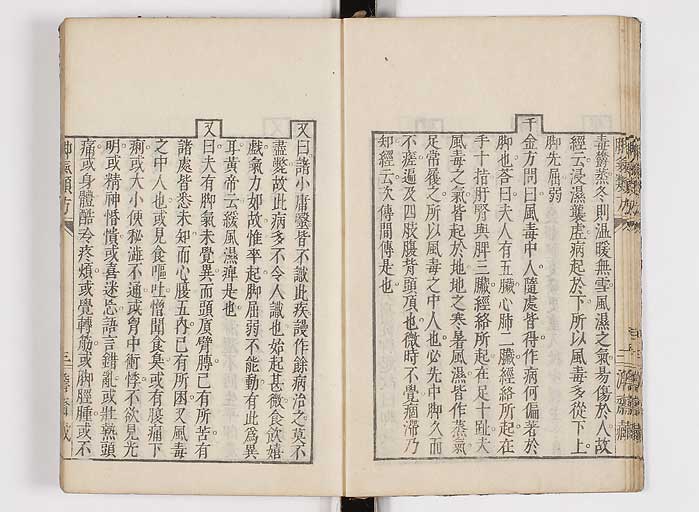 毒鬱蒸冬則温暖無雪風濕之氣易傷於人故
經云浸濕襲虗病起於下所以風毒多從下上
脚先屈弱
千金方問曰風毒中人隨處皆得作病何偏著於
脚也答曰夫人有五臟心肺二臟經絡所起在
手十指肝腎與脾三臟經絡所起在足十趾夫
風毒之氣皆起於地地之寒暑風濕皆作蒸氣
足常履之所以風毒之中人也必先中脚久而
不瘥遍及四肢腹背頭項也微時不覺痼滯乃
知經云次傳間傳是也
脚氣類方
三
又曰諸小庸醫皆不識此疾謾作餘病治之莫不
盡斃故此病多不令人識也始起甚微食飲嬉
戲氣力如故惟卒起脚屈弱不能動有此爲異
耳黃帝云緩風濕痺是也
又曰夫有脚氣未覺異而頭項臂膊已有所苦有
諸處皆悉未知而心腹五內已有所困又風毒
之中人也或見食嘔吐憎聞食臭或有腹痛下
痢或大小便秘澁不通或胷中衝悸不欲見光
明或精神惛憒或喜迷忘語言錯亂或壯熱頭
痛或身體酷冷疼煩或覺轉筋或脚脛腫或不